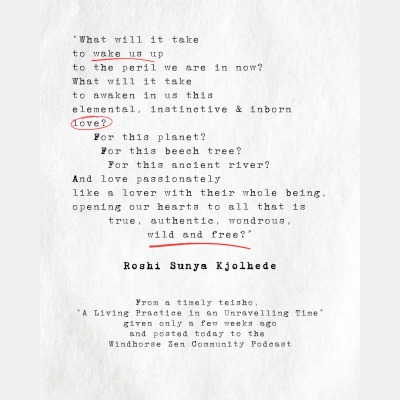 "What will it take
to wake us up
to the peril we are in now?
What will it take
to awaken in us this
elemental, instinctive & inborn
love?
For this planet?
For this beech tree?
For this ancient river?
And love passionately
like a lover with their whole being,
opening our hearts to all that is
true, authentic, wondrous,
wild and free?"
Roshi Sunya Kjolhede
From a timely teisho,
"A Living Practice in an Unravelling Time"
given only a few weeks ago
and posted today to the
Windhorse Zen Community Podcast